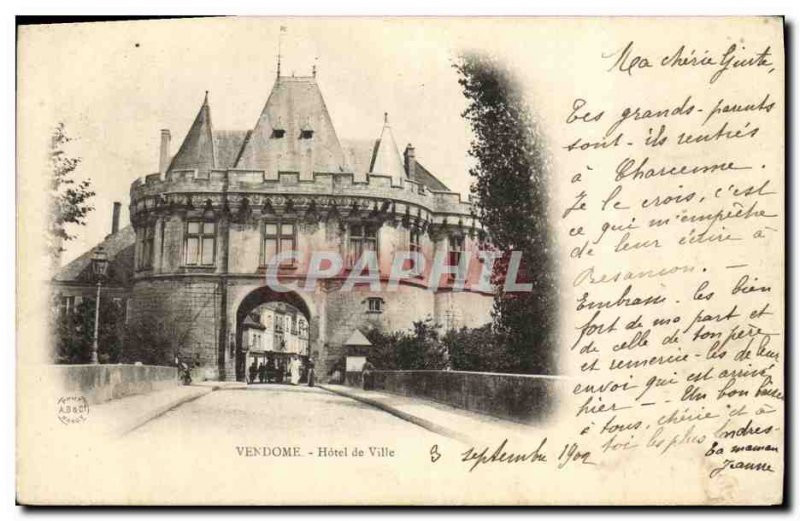 Ma chérie Ginte,
Tes grands-parents
sont-ils rentrés
à Charcenne.
Je le crois, c'est
ce qui m'empêche
de leur écrire à
Besançon. —
Embrasse-les bien
fort de ma part et
de celle de ton père
et remercie-les de leur
envoi qui est arrivé
hier — Un bon baiser
à tous, chérie, et à
toi les plus tendres -
Ta maman
Jeanne
CPARPHIL
A.B&C
NANCY
VENDOME. - Hôtel de Ville
3 septembre 1902